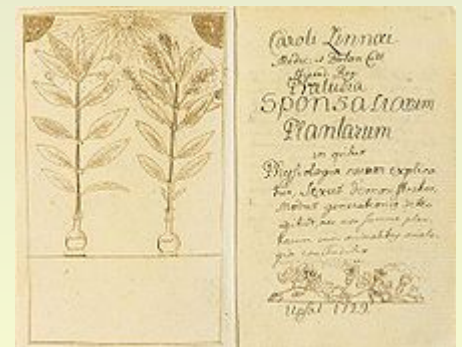 Caroli Linnæi
Medic. et Botan. Cult
Stipend. Reg
Præludia
Sponsaliorum
Plantarum
in quibus
Physiologia earum explica
tur, Sexus demonstratur,
Modus generationis dete
gitur, nec non summa plan
tarum cum animalibus analo
gia concluditur
Upsal 1729